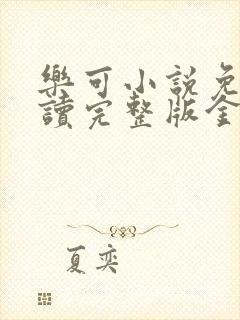 樂可小說免
讀完整版全
夏奕